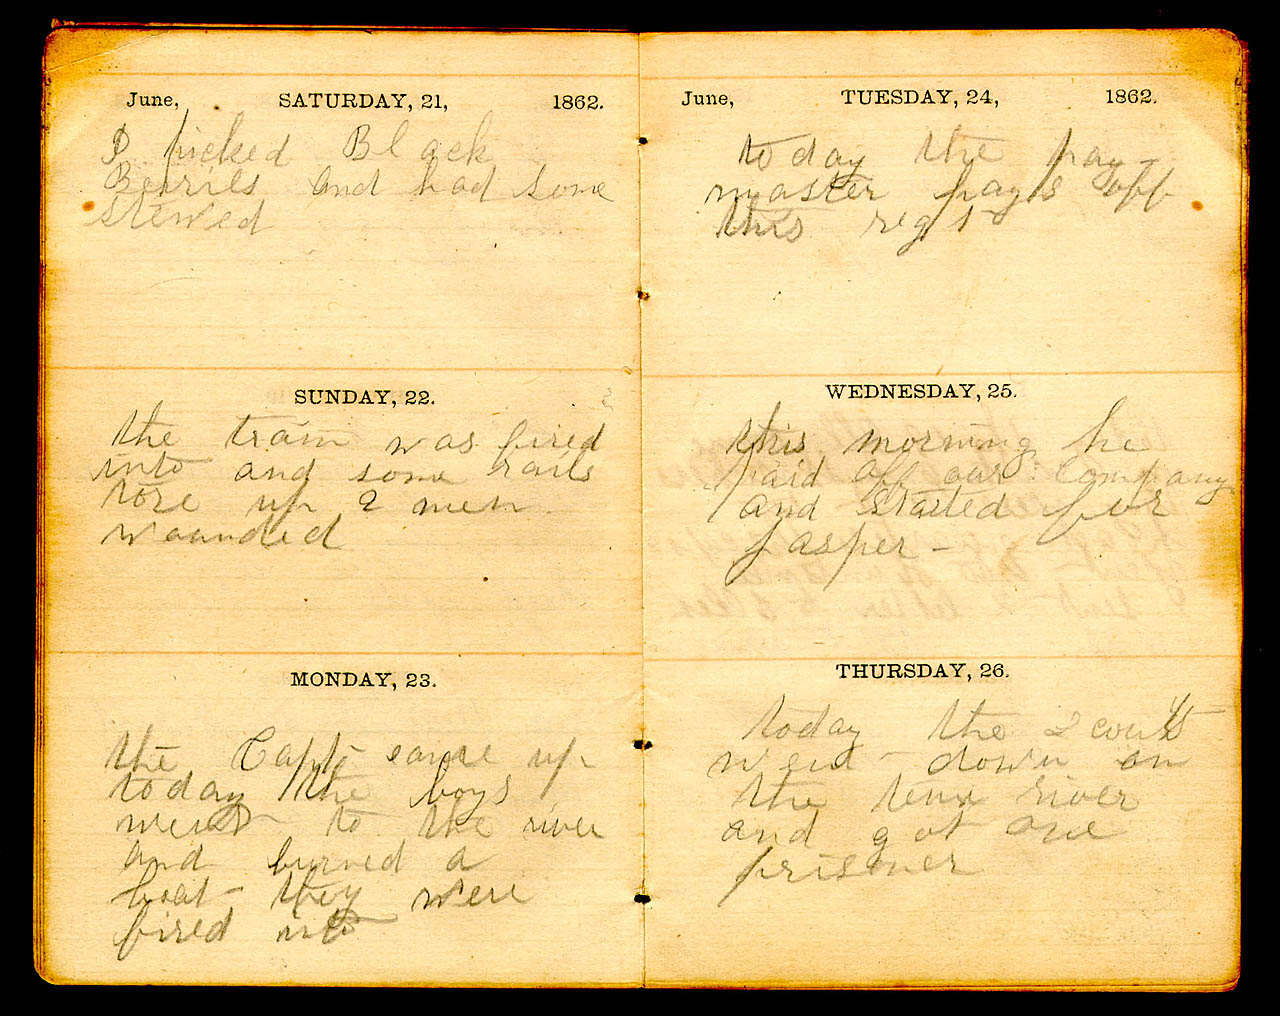 June, SATURDAY, 21, 1862.
I picked Black
Berrils and had some
stewed
SUNDAY, 22.
the train was fired
into and some rails
tore up 2 men
wounded
MONDAY, 23.
the Capt came up
today the boys
went to the river
and burned a
boat they were
fired into
June, TUESDAY, 24, 1862.
today the pay
master pays off
this regt
WEDNESDAY, 25.
this morning he
paid off our Company
and started for
Jasper -
THURSDAY, 26.
today the scouts
went down on
the tenn river
and got one
prisoner